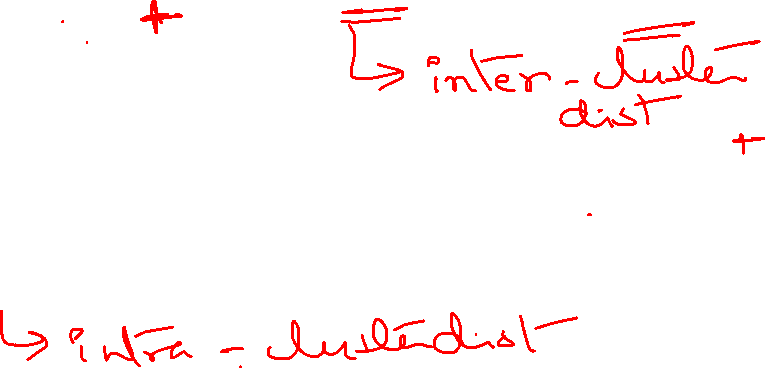 +
↳ inter - cluster
dist
+
↳ intra - cluster dist